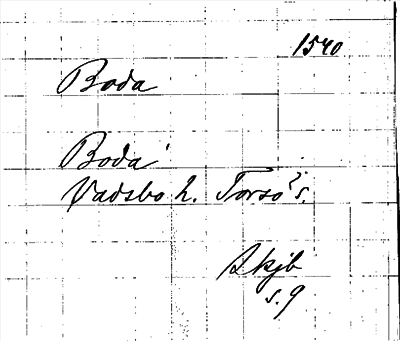 1540
Boda
Boda
Vadsbo h. Torsö? s.
Skjb
s. 9